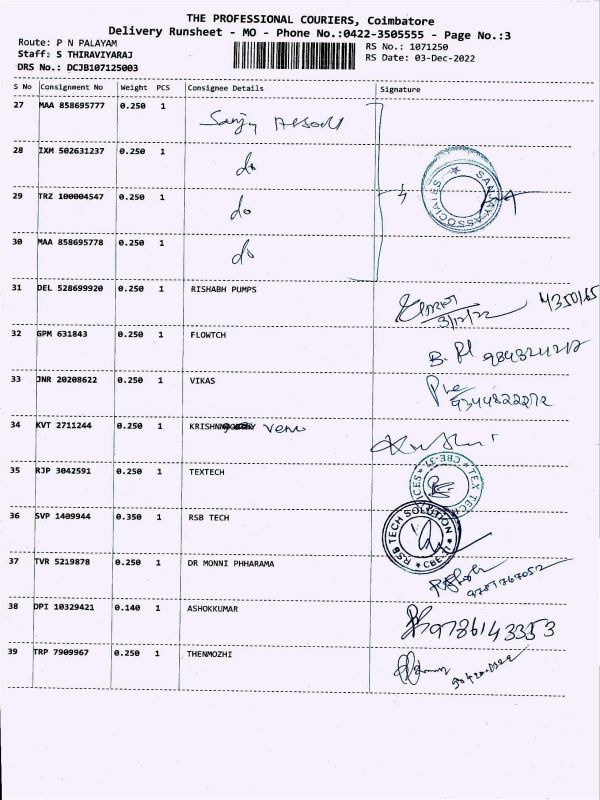 THE PROFESSIONAL COURIERS, Coimbatore
Delivery Runsheet - MO - Phone No.:0422-3505555 - Page No.:3
Route: P N PALAYAM
Staff: S THIRAVIYARAJ
DRS No.: DCJB107125003
RS No.: 1071250
RS Date: 03-Dec-2022
S No Consignment No Weight PCS Consignee Details Signature
27 MAA 858695777 0.250 1 Sanjay Assod
28 IXM 502631237 0.250 1 do
29 TRZ 100004547 0.250 1 do
30 MAA 858695778 0.250 1 do
SANJAY ASSOCIATES
31 DEL 528699920 0.250 1 RISHABH PUMPS
3/12/22
32 GPM 631843 0.250 1 FLOWTCH
33 JNR 20208622 0.250 1 VIKAS
9344822272
34 KVT 2711244 0.250 1 KRISHN Veni
35 RJP 3042591 0.250 1 TEXTECH
TEX TECH CBE-37
36 SVP 1409944 0.350 1 RSB TECH
RSB TECH SOLUTION
37 TVR 5219878 0.250 1 DR MONNI PHHARAMA
38 DPI 10329421 0.140 1 ASHOKKUMAR 9786143353
39 TRP 7909967 0.250 1 THENMOZHI